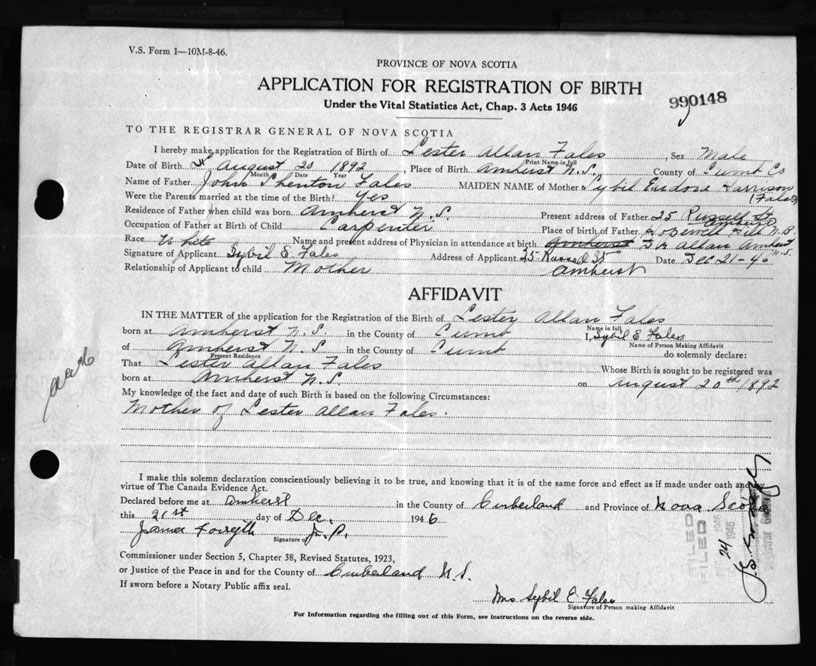 V.S. Form 1—10M-8-46.
PROVINCE OF NOVA SCOTIA
APPLICATION FOR REGISTRATION OF BIRTH
990148
Under the Vital Statistics Act, Chap. 3 Acts 1946
TO THE REGISTRAR GENERAL OF NOVA SCOTIA
I hereby make application for the Registration of Birth of Lester Allan Fales, Sex Male
Print Name in full
Date of Birth August 20 1892, Place of Birth Amherst N.S. County of Cumb Co
Month Date Year
Name of Father John Shenton Fales MAIDEN NAME of Mother Sybil Eudora Harrison
(Fales)
Were the Parents married at the time of Birth? Yes
Residence of Father when child was born Amherst N.S. Present address of Father 25 Russell St
Amherst
Occupation of Father at Birth of Child Carpenter Place of birth of Father Hill N.B.
Race White Name and present address of Physician in attendance at birth Amherst Dr Allan Amherst
N.S.
Signature of Applicant Sybil E Fales Address of Applicant 25 Russell St Date Dec 21-46
Relationship of Applicant to child Mother Amherst
AFFIDAVIT
IN THE MATTER of the application for the Registration of Birth of Lester Allan Fales
Name in full
born at Amherst N.S. in the County of Cumb I, Sybil E Fales
Name of Person Making Affidavit
of Amherst N.S. in the County of Cumb do solemnly declare:
Present Residence
That Lester Allan Fales Whose Birth is sought to be registered was
born at Amherst N.S. on August 20th 1892
My knowledge of the fact and date of such Birth is based on the following Circumstances:
Mother of Lester Allan Fales.
I make this solemn declaration conscientiously believing it to be true, and knowing that it is of the same force and effect as if made under oath and
virtue of The Canada Evidence Act.
Declared before me at Amherst in the County of Cumberland and Province of Nova Scotia
this 21st day of Dec. 1946
James Forsyth J.P.
Signature of
FILED
24
1946
Commissioner under Section 5, Chapter 38, Revised Statutes, 1923,
or Justice of the Peace in and for the County of Cumberland N.S.
If sworn before a Notary Public affix seal.
Mrs Sybil E. Fales
Signature of Person making Affidavit
For Information regarding the filling out of this Form, see instructions on the reverse side.